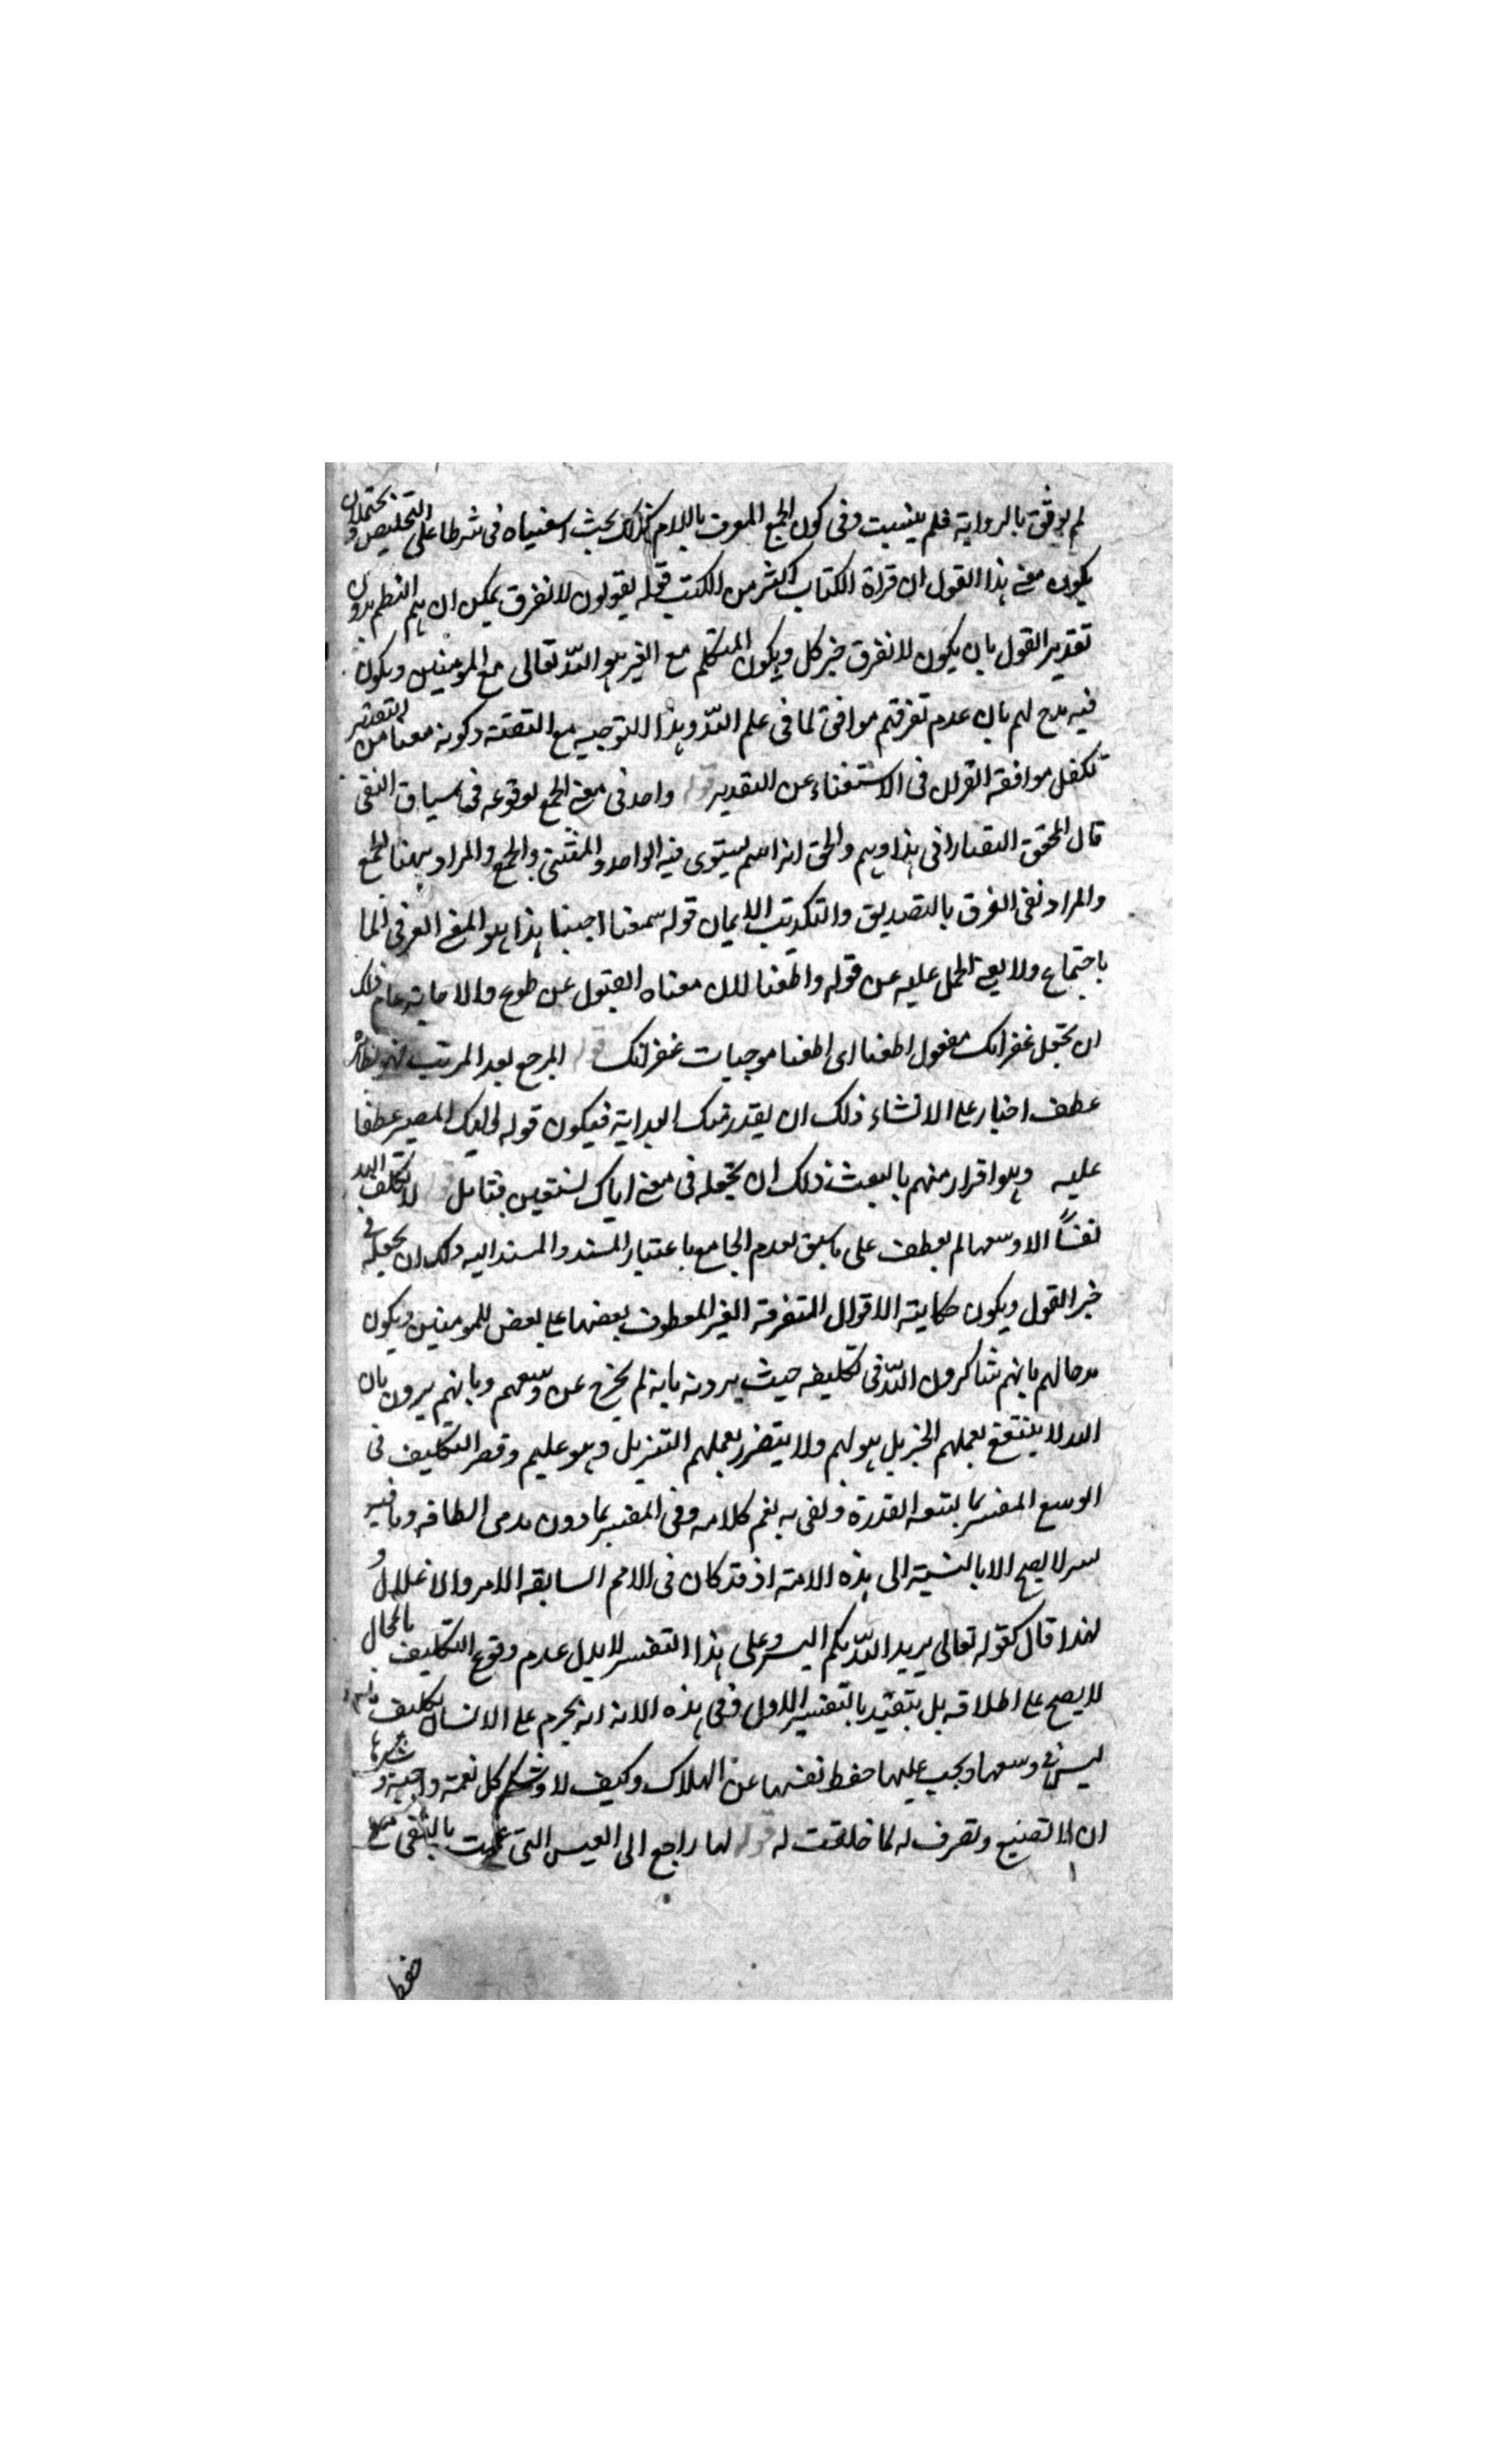 لم يوثق بالرواية فلم يثبت وفي كون الجمع المعرف باللام كذلك بحث اسفنياه في شرطا على التخليص ويحتمل ان
يكون معنى هذا القول ان قراة الكتاب اكثر من الكتب قوله يقولون لا نفرق يمكن ان يتم النظم بدون
تقدير القول بان يكون لا نفرق خبر كل ويكون المتكلم مع الغير هو الله تعالى مع المومنين ويكون
فيه مدح لهم بان عدم تفرقتهم موافق لما في علم الله وهذا التوجيه مع التقتة وكونه معنا من التعتبر
تكفل موافقه القران في الاستغناء عن التقدير قوله واحد في معنى الجمع لوقوعه في سياق النفي
قال المحقق التفتازاني هذا وهم والحق انه اسم يستوي فيه الواحد والمثنى والجمع والمراد ههنا الجمع
والمراد نفي الفرق بالتصديق والتكذيب الايمان قوله سمعنا اجبنا هذا هو المعنى العرفي لما
باجتماع ولا يعى الحمل عليه عن قوله واطعنا لان معناه القبول عن طوع والاجابة عام ذلك
ان تجعل غفرانك مفعول اطعنا اى اطعنا موجبات غفرانك قوله المرجع بعد المرتب
عطف اخبار على الانشاء ذلك ان يقدر منك البداية فيكون قوله واليك المصير عطفا
عليه وهو اقرار منهم بالبعث ذلك ان تجعله في معنى اياك نستعين فتامل قوله لا يكلف الله
نفسًا الا وسعها لم يعطف على ما سبق لعدم الجامع باعتبار المسند والمسند اليه ولك ان تجعله في
خبر القول ويكون حكايته الاقوال المتفرقة الغير المعطوف بعضها على بعض للمومنين ويكون
مدحا لهم بانهم شاكرون الله في تكليفه حيث يرونه بانه لم يخرج عن وسعهم وبانهم يرون بان
الله لا ينتفع بعملهم الخبر بل هو لهم ولا يتضرر بعملهم التنزيل وهو عليم وقصر التكليف في
الوسع المفسر بما يتسعه القدرة ونفى به نعم كلامه وفي المفسر بما دون مدى الطاقه وما فيه
سر لا يصح الا بالنسبة الى هذه الامته اذ قد كان في الامم السابقة الامر والاغلال و
لهذا قال كقوله تعالى يريد الله بكم اليسر وعلى هذا التفسير لا يدل عدم وقوع التكليف بالمحال
لا يصح على اطلاقه بل يتقيد بالتفسير الاول ففي هذه الاية انه يحرم على الانسان تكليف
ليس في وسعها ويجب عليها حفظ نفسها عن الهلاك وكيف لا وشكر كل نعمة واجبة و
ان لا تصنيع وتصرف له لما خلقت له قوله لها راجع الى العيس التي عمت بالنفي
حفظ